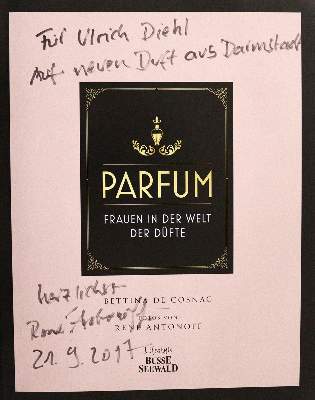 Für Ulrich Diehl
Auf neuen Duft aus Darmstadt
PARFUM
FRAUEN IN DER WELT
DER DÜFTE
herzlichst
BETTINA DE COSNAC
FOTOS VON
RENÉ ANTONOFF
21.9.2017
Lifestyle
BUSSE
SEEWALD